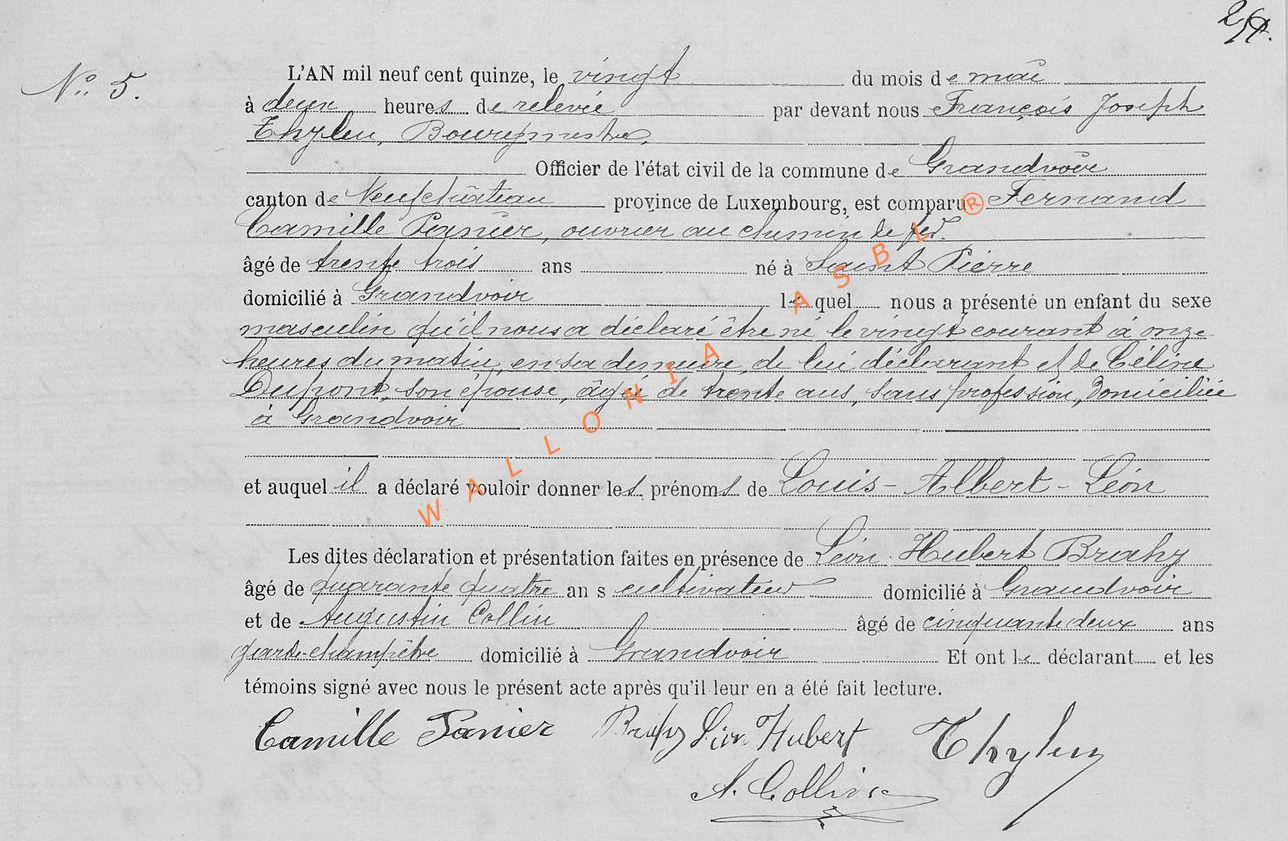 N° 5.
L'AN mil neuf cent quinze, le vingt du mois de mai
à deux heures de relevée par devant nous François Joseph
Thylen, Bourgmestre,
Officier de l'état civil de la commune de Grandvoir
canton de Neufchâteau province de Luxembourg, est comparu Fernand
Camille Panier, ouvrier au chemin de fer.
âgé de trente trois ans né à Saint Pierre
domicilié à Grandvoir lequel nous a présenté un enfant du sexe
masculin qu'il nous a déclaré être né le vingt courant à onze
heures du matin, en sa demeure, de lui déclarant et de Céline
Dupont, son épouse, âgée de trente ans, sans profession, domiciliée
à Grandvoir
et auquel il a déclaré vouloir donner les prénoms de Louis-Albert-Léon
Les dites déclaration et présentation faites en présence de Léon Hubert Brahy
âgé de quarante quatre ans cultivateur domicilié à Grandvoir
et de Augustin Collin âgé de cinquante deux ans
garde-champêtre domicilié à Grandvoir Et ont le déclarant et les
témoins signé avec nous le présent acte après qu'il leur en a été fait lecture.
Camille Panier Brahy Léon Hubert Thylen
A. Collin
WALLONIA ASBL ®